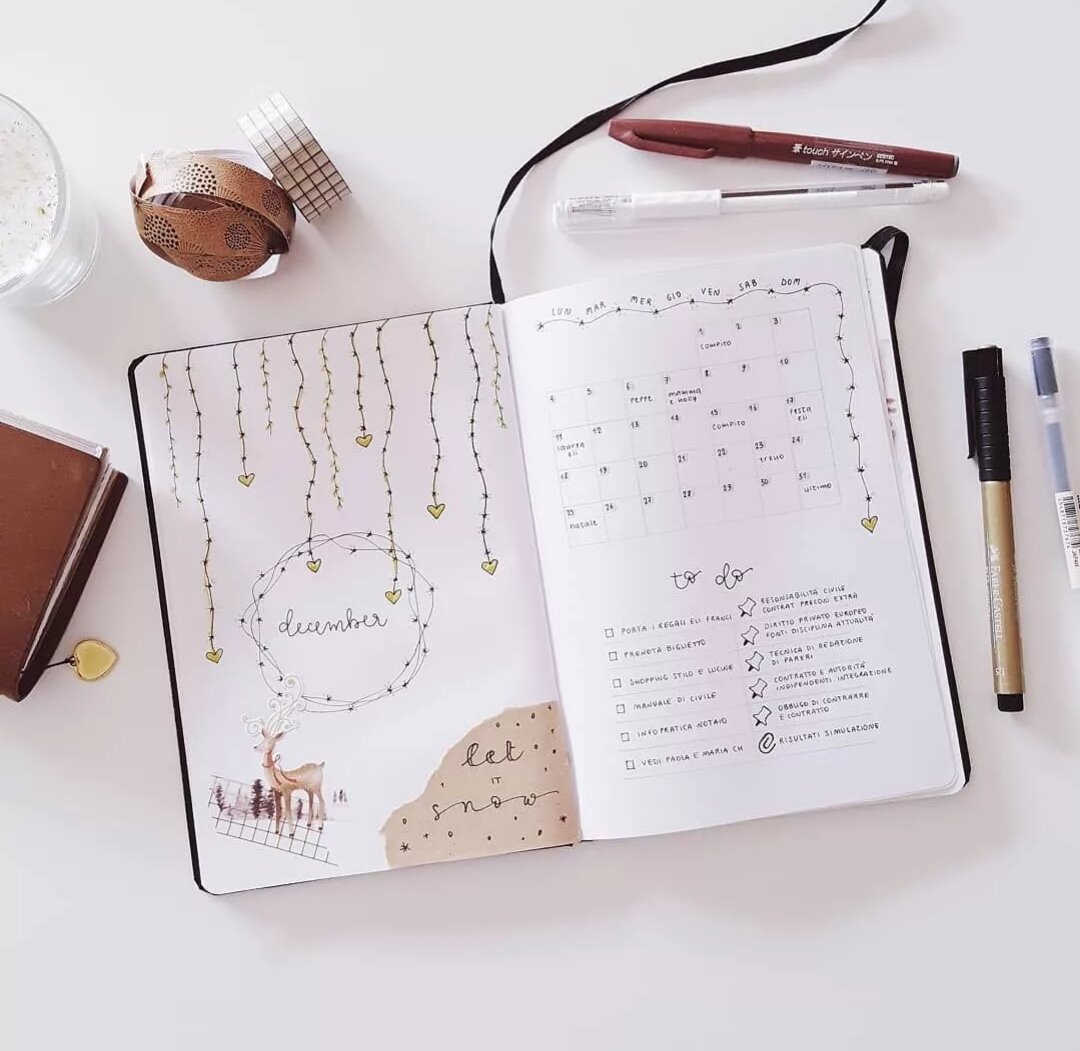 touch サインペン
LUN MAR MER GIO VEN SAB DOM
1 2 3
compito
4 5 6 7 8 9 10
peppe
mamma
e nolly
11 12 13 14 15 16 17
laurea
eli
compito
festa
eli
18 19 20 21 22 23 24
treno
25 26 27 28 29 30 31
natale
ultimo
december
let
IT
snow
to do
PORTA I REGALI ELI FRANCI
PRENOTA BIGLIETTO
SHOPPING STILO E LUCINE
MANUALE DI CIVILE
INFO PRATICA NOTAIO
VEDI PAOLA E MARIA CH
RESONSABILITÀ CIVILE
CONTRAT. PRECON. EXTRA
DIRITTO PRIVATO EUROPEO
FONTI DISCIPLINA ATTUALITÀ
TECNICA DI REDAZIONE
DI PARERI
CONTRATTO E AUTORITÀ
INDIPENDENTI, INTEGRAZIONE
OBBLIGO DI CONTRARRE
E CONTRATTO
RISULTATI SIMULAZIONE
FABER-CASTELL
JAPAN